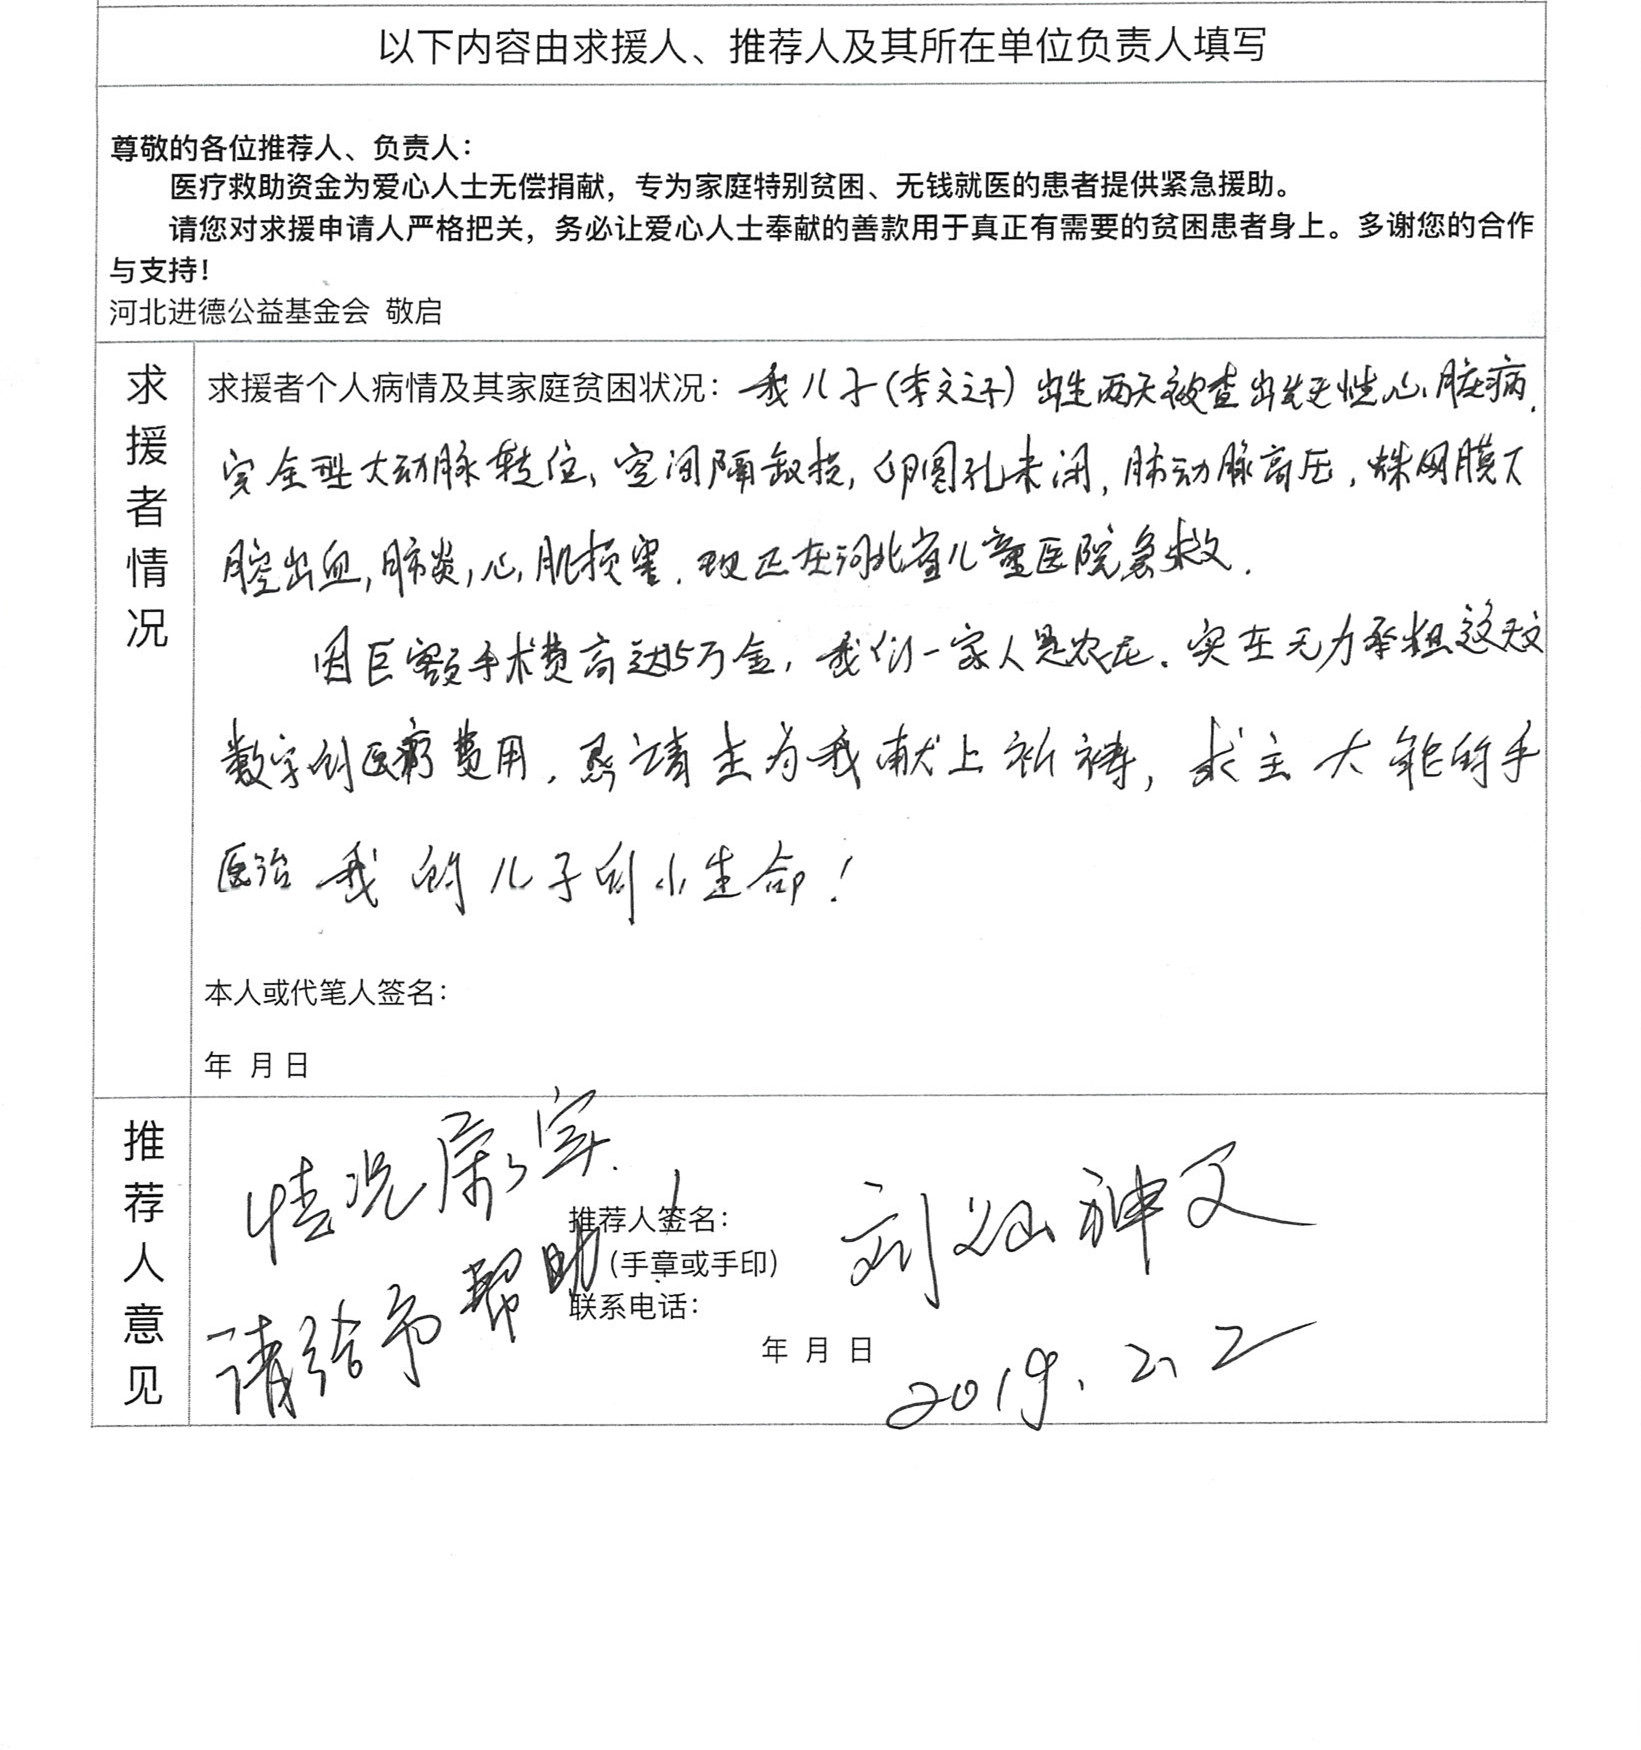 以下内容由求援人、推荐人及其所在单位负责人填写
尊敬的各位推荐人、负责人：
医疗救助资金为爱心人士无偿捐献，专为家庭特别贫困、无钱就医的患者提供紧急援助。
请您对求援申请人严格把关，务必让爱心人士奉献的善款用于真正有需要的贫困患者身上。多谢您的合作
与支持!
河北进德公益基金会 敬启
求援者情况
求援者个人病情及其家庭贫困状况：我儿子(李文) 出生两天被查出先天性心脏病.
完全型大动脉转位，室间隔缺损，卵圆孔未闭，肺动脉高压，蛛网膜下
腔出血，肺炎，心肌损害．现正在河北省儿童医院急救．
因巨额手术费高达15万金，我们一家人是农民．实在无力承担这天文
数字的医疗费用．恳请主为我献上祈祷，求主大能的手
医治我的儿子的小生命！
本人或代笔人签名：
年 月 日
推荐人意见
情况属实．
请给予帮助！
推荐人签名：
(手章或手印)
联系电话：
刘 神父
年 月 日
2019.2.2